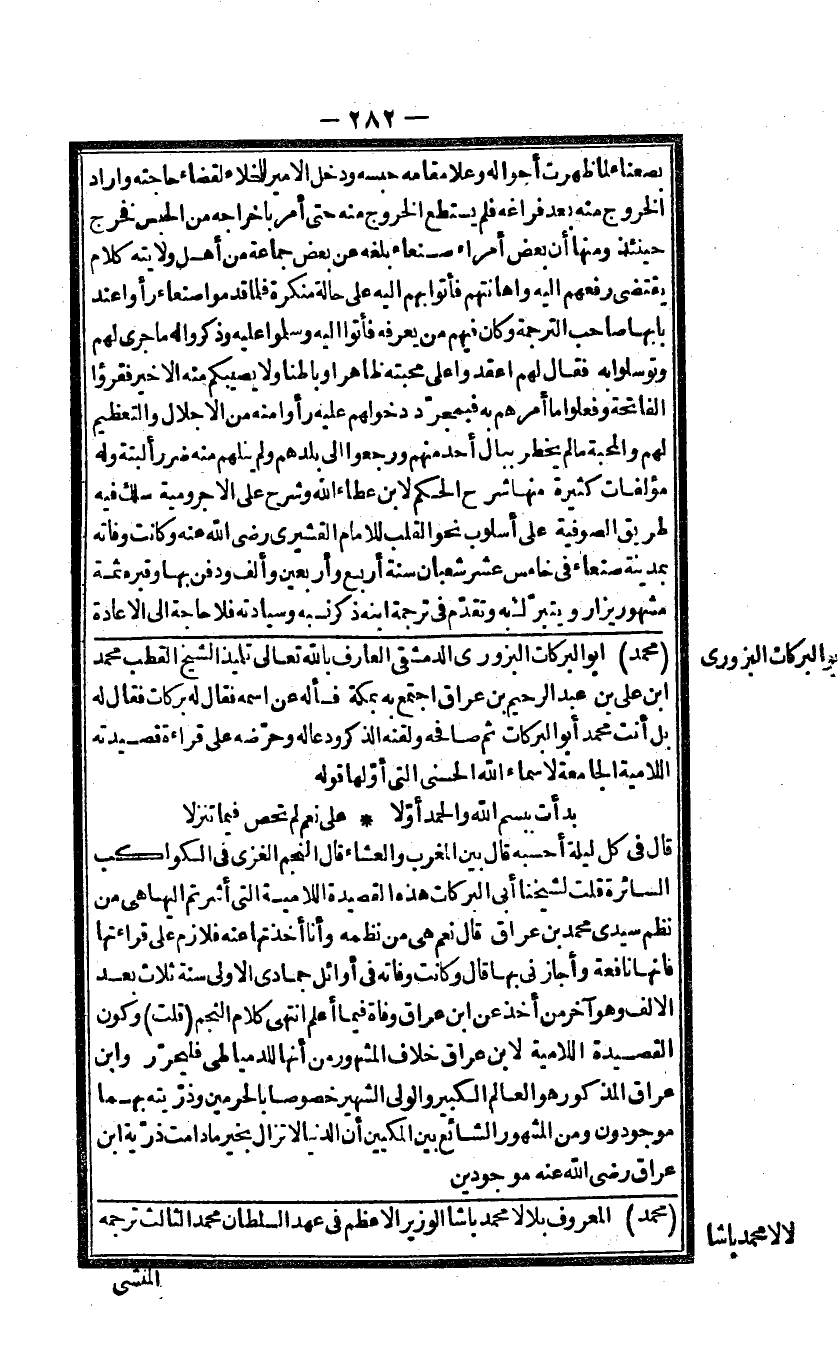 — ٢٨٢ —
بصنعاء لما ظهرت أحواله وعلا مقامه حبسه ودخل الامير للخلاء لقضاء حاجته واراد
الخروج منه بعد فراغه فلم يستطع الخروج منه حتى أمر باخراجه من الحبس فخرج
حينئذ ومنها أن بعض أمراء صنعاء بلغه عن بعض جماعة من أهل ولايته كلام
يقتضى رفعهم اليه واهانتهم فأتوا بهم اليه على حالة منكرة فلما قدموا صنعاء رأوا عند
بابها صاحب الترجمة وكان فيهم من يعرفه فأتوا اليه وسلموا عليه وذكروا له ما جرى لهم
وتوسلوا به فقال لهم اعقدوا على محبته ظاهرا وباطنا ولا يصيبكم منه الا خير فقرؤا
الفاتحة وفعلوا ما أمرهم به فبمجرّد دخولهم عليه رأوا منه من الاجلال والتعظيم
لهم والمحبة مالم يخطر ببال أحد منهم ورجعوا الى بلدهم ولم ينلهم منه ضرر ألبتة وله
مؤلفات كثيرة منها شرح الحكم لابن عطاء الله وشرح على الاجرومية سلك فيه
طريق الصوفية على أسلوب نحو القلب للامام القشيرى رضى الله عنه وكانت وفاته
بمدينة صنعاء فى خامس عشر شعبان سنة أربع وأربعين وألف ودفن بها وقبره ثمة
مشهور يزار ويتبرّك به وتقدّم فى ترجمة ابنه ذكر نسبه وسيادته فلا حاجة الى الاعادة
بو البركات البزورى
(محمد) ابو البركات البزورى الدمشقى العارف بالله تعالى تلميذ الشيخ القطب محمد
ابن على بن عبد الرحيم بن عراق اجتمع به بمكة فسأله عن اسمه فقال له بركات فقال له
بل أنت محمد أبو البركات ثم صافحه ولقنه الذكر ودعا له وحرّضه على قراءة قصيدته
اللامية الجامعة لاسماء الله الحسنى التى أوّلها قوله
بدأت ببسم الله والحمد أوّلا * على نعم لم تحص فيما تنزلا
قال فى كل ليلة أحسبه قال بين المغرب والعشاء قال النجم الغزى فى الكواكب
السائرة قلت لشيخنا أبى البركات هذه القصيدة اللامية التى أشرتم اليها هى من
نظم سيدى محمد بن عراق قال نعم هى من نظمه وأنا أخذتها عنه فلازم على قراءتها
فانها نافعة وأجازنى بها قال وكانت وفاته فى أوائل جمادى الاولى سنة ثلاث بعد
الالف وهو آخر من أخذ عن ابن عراق وفاة فيما أعلم انتهى كلام النجم (قلت) وكون
القصيدة اللامية لابن عراق خلاف المشهور من أنها للدمياطى فليحرّر وابن
عراق المذكور هو العالم الكبير والولى الشهير خصوصا بالحرمين وذرّيته بهما
موجودون ومن المشهور الشائع بين المكيين أن الدنيا لا تزال بخير مادامت ذرّية ابن
عراق رضى الله عنه موجودين
لالا محمد باشا
(محمد) المعروف بلالا محمد باشا الوزير الاعظم فى عهد السلطان محمد الثالث ترجمه
المنشى